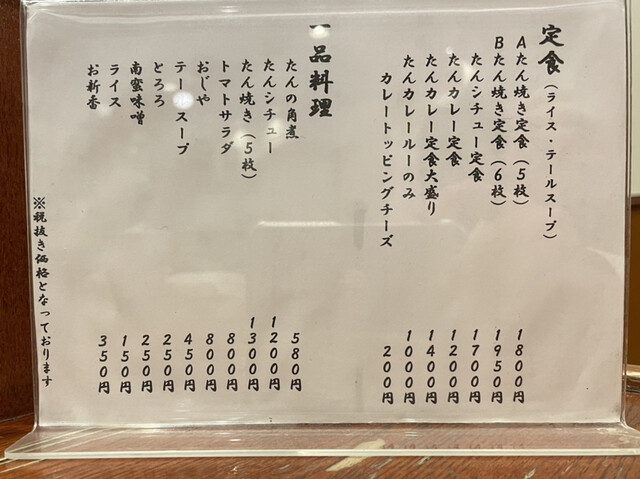 定食（ライス・テールスープ）
Aたん焼き定食（5枚） 1800円
Bたん焼き定食（6枚） 1950円
たんシチュー定食 1700円
たんカレー定食 1200円
たんカレー定食大盛り 1400円
たんカレールーのみ 1000円
カレートッピングチーズ 200円
一品料理
たんの角煮 580円
たんシチュー 1200円
たん焼き（5枚） 1300円
トマトサラダ 800円
おじや 800円
テールスープ 450円
とろろ 250円
南蛮味噌 250円
ライス 150円
お新香 350円
※税抜き価格となっております